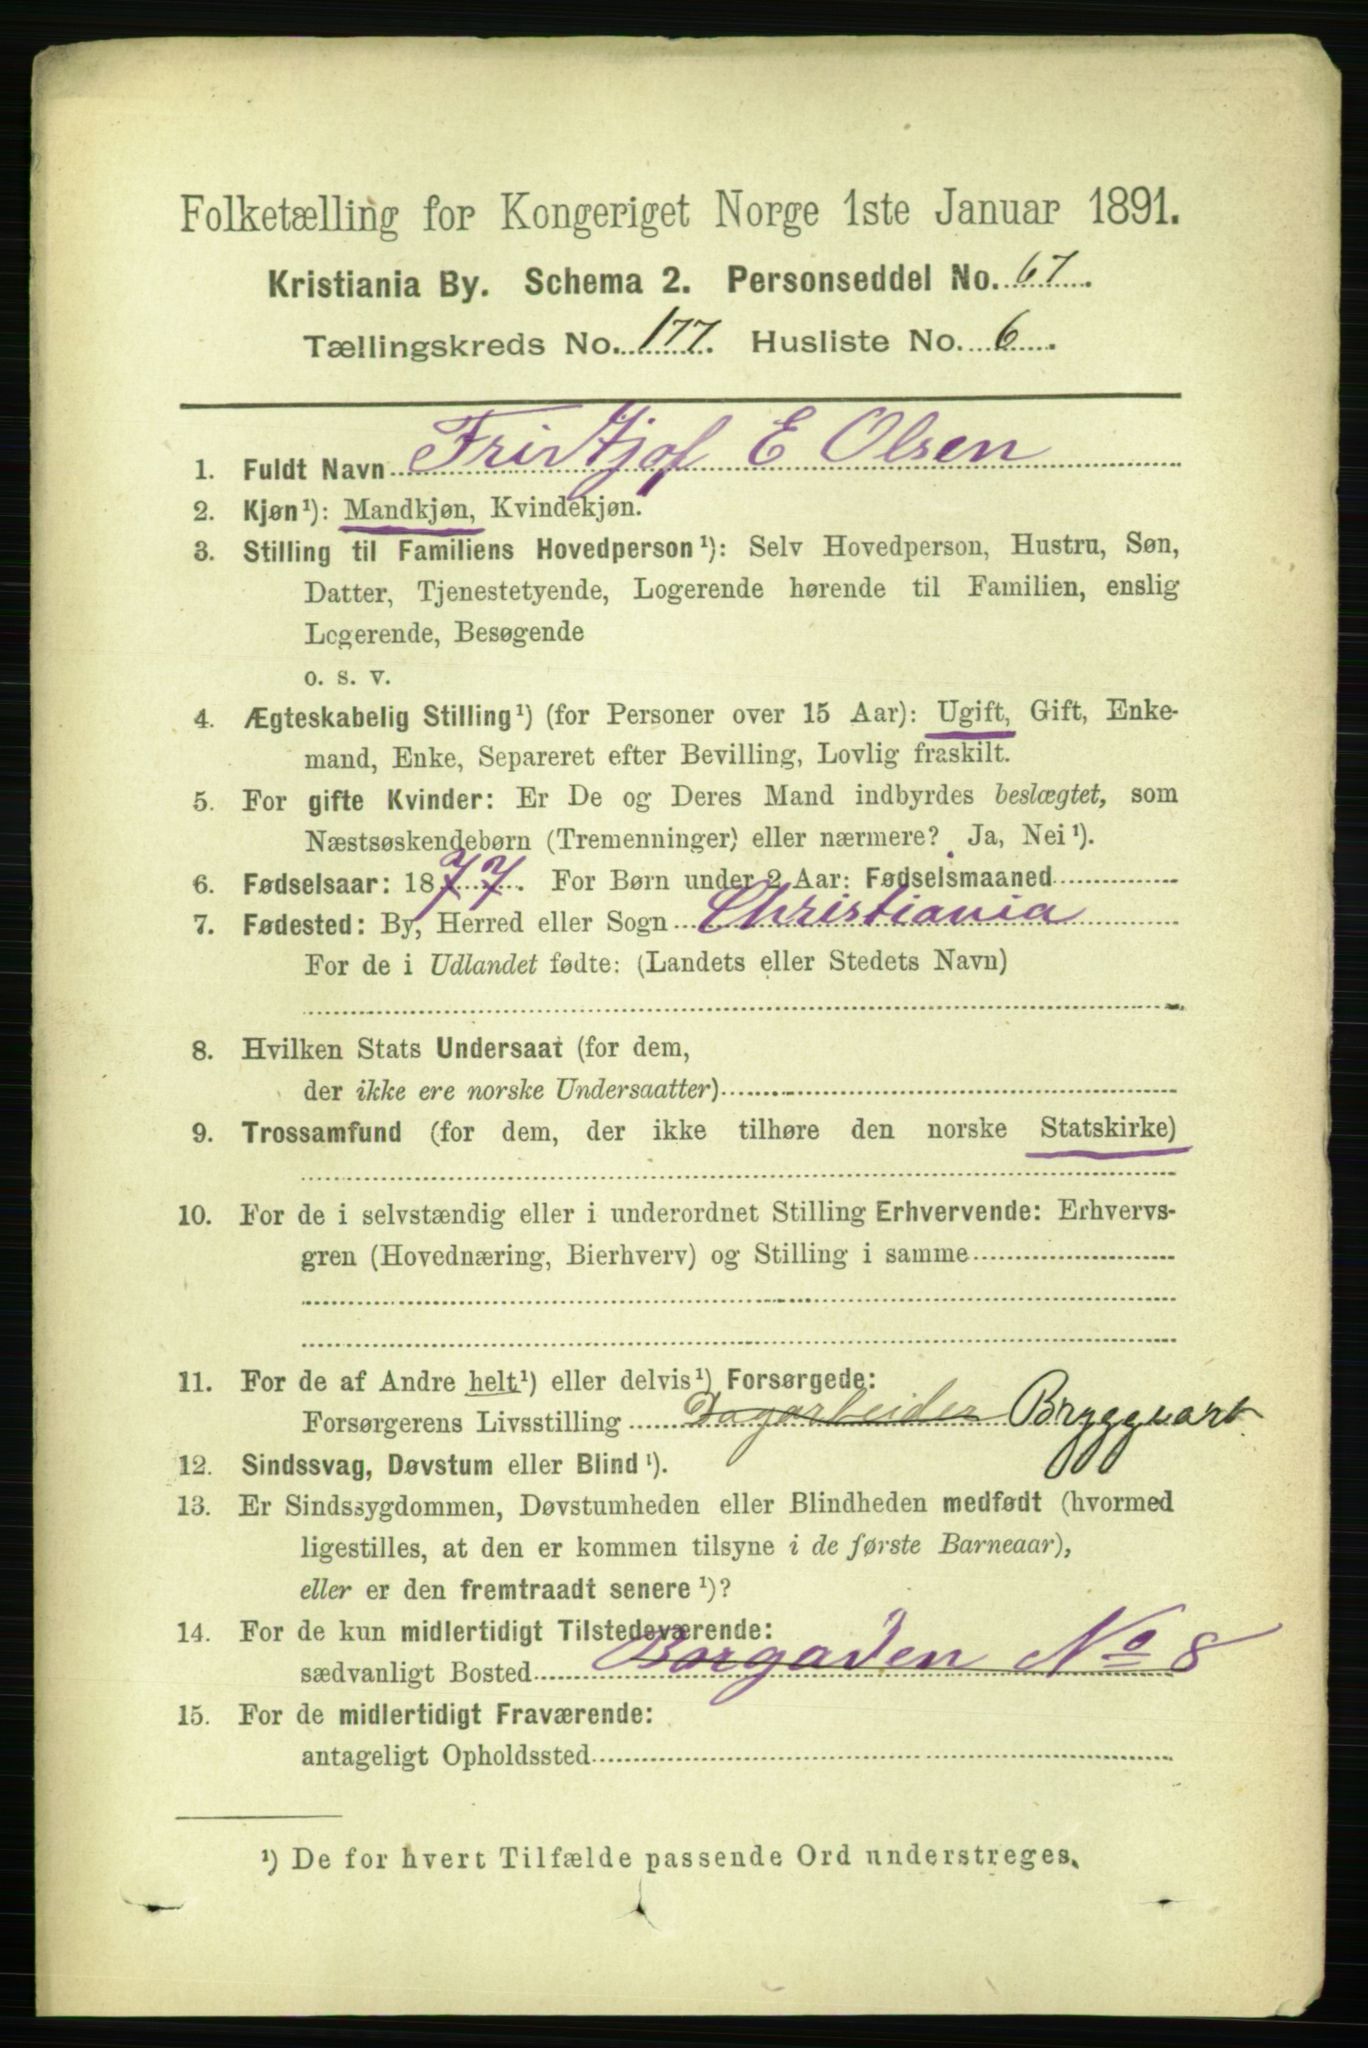 Folketælling for Kongeriget Norge 1ste Januar 1891.
Kristiania By. Schema 2. Personseddel No. 67.
Tællingskreds No. 177. Husliste No. 6.
1. Fuldt Navn Fridtjof E Olsen
2. Kjøn¹): Mandkjøn, Kvindekjøn.
3. Stilling til Familiens Hovedperson¹): Selv Hovedperson, Hustru, Søn,
Datter, Tjenestetyende, Logerende hørende til Familien, enslig
Logerende, Besøgende
o. s. v.
4. Ægteskabelig Stilling¹) (for Personer over 15 Aar): Ugift, Gift, Enke-
mand, Enke, Separeret efter Bevilling, Lovlig fraskilt.
5. For gifte Kvinder: Er De og Deres Mand indbyrdes beslægtet, som
Næstsøskendebørn (Tremenninger) eller nærmere? Ja, Nei¹).
6. Fødselsaar: 1877. For Børn under 2 Aar: Fødselsmaaned
7. Fødested: By, Herred eller Sogn Christiania
For de i Udlandet fødte: (Landets eller Stedets Navn)
8. Hvilken Stats Undersaat (for dem,
der ikke ere norske Undersaatter)
9. Trossamfund (for dem, der ikke tilhøre den norske Statskirke)
10. For de i selvstændig eller i underordnet Stilling Erhvervende: Erhvervs-
gren (Hovednæring, Bierhverv) og Stilling i samme
11. For de af Andre helt¹) eller delvis¹) Forsørgede:
Forsørgerens Livsstilling Dagarbeider Bryggearb.
12. Sindssvag, Døvstum eller Blind¹).
13. Er Sindssygdommen, Døvstumheden eller Blindheden medfødt (hvormed
ligestilles, at den er kommen tilsyne i de første Barneaar),
eller er den fremtraadt senere¹)?
14. For de kun midlertidigt Tilstedeværende:
sædvanligt Bosted Borgaden No 8
15. For de midlertidigt Fraværende:
antageligt Opholdssted
¹) De for hvert Tilfælde passende Ord understreges.